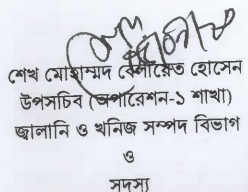 শেখ মোহাম্মদ বেলায়েত হোসেন
উপসচিব (অপারেশন-১ শাখা)
জ্বালানি ও খনিজ সম্পদ বিভাগ
ও
সদস্য